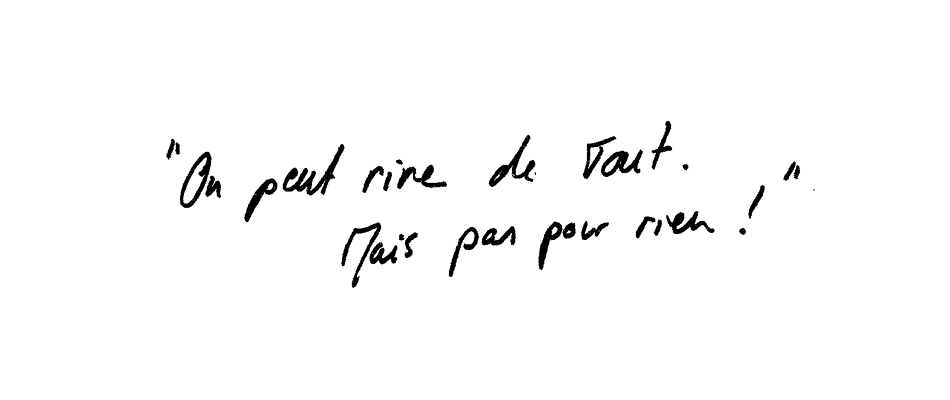 "On peut rire de Tout.
Mais pas pour rien ! "